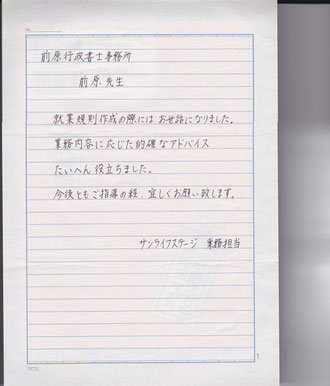 前原行政書士事務所
前原先生
就業規則作成の際にはお世話になりました。
業務内容に応じた的確なアドバイス
たいへん役立ちました。
今後ともご指導の程、宜しくお願い致します。
サンライフステージ 業務担当